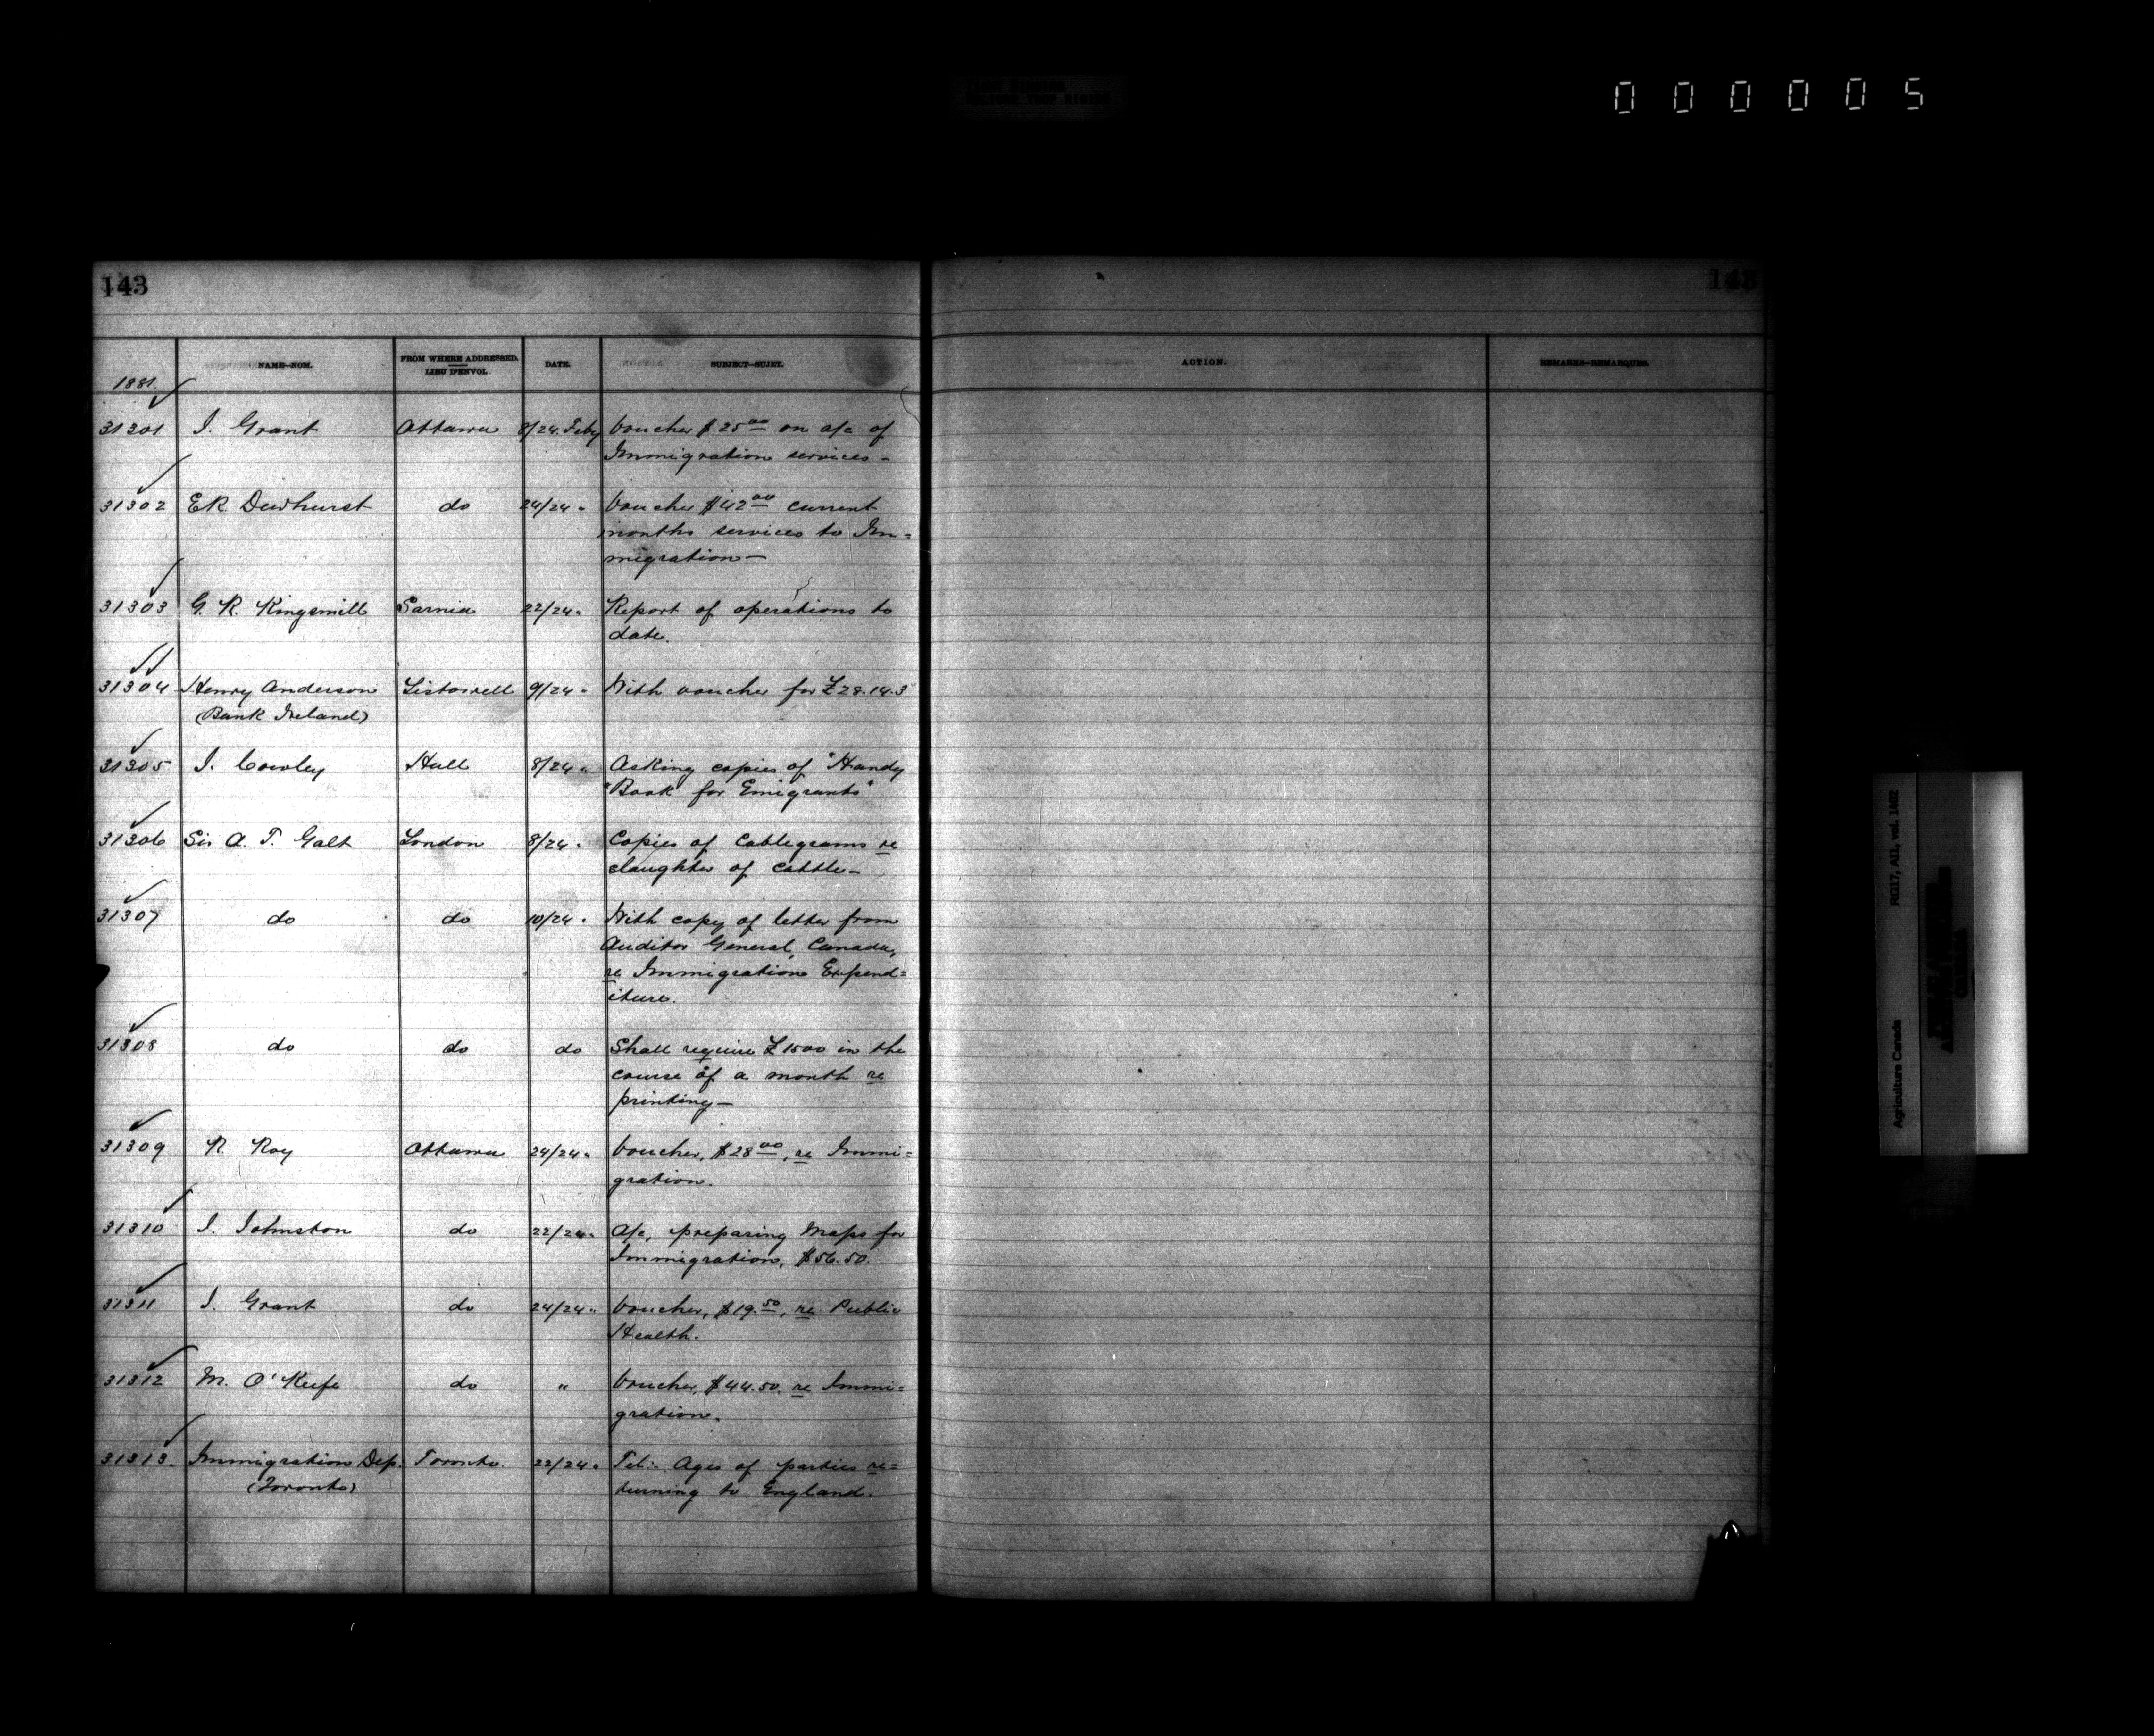 000005
143
143
NAME—NOM.
FROM WHERE ADDRESSED.
LIEU D'ENVOI.
DATE.
SUBJECT—SUJET.
ACTION.
REMARKS—REMARQUES.
1881.
31301 J. Grant Ottawa 8/24 Feby Voucher $25 00 on a/c of
Immigration services -
31302 E R Dewhurst do 24/24 " Voucher $42 00 current
months services to Im=
migration —
31303 G. R. Kingsmill Sarnia 22/24 " Report of operations to
date.
31304 Henry Anderson Listowell 9/24 " With voucher for £28.14.3
(Bank Ireland)
31305 J. Cowley Hull 8/24 " Asking copies of "Handy
"Book for Emigrants"
31306 Sir A. T. Galt London 8/24 " Copies of Cablegrams re
slaughter of cattle —
31307 do do 10/24 " With copy of letter from
Auditor General, Canada,
re Immigration Expend=
iture.
31308 do do do Shall require £1500 in the
course of a month re
printing —
31309 R. Roy Ottawa 24/24 " Voucher, $28 00, re Immi=
gration.
31310 J. Johnston do 22/24 " A/c, preparing Maps for
Immigration, $56.50.
31311 J. Grant do 24/24 " Voucher, $19.50, re Public
Health.
31312 M. O'Keefe do " Voucher, $44.50, re Immi=
gration.
31313. Immigration Dep. Toronto. 22/24 " Tel:- Ages of parties re=
(Toronto) turning to England.
Agriculture Canada RG17, AII, vol. 1402